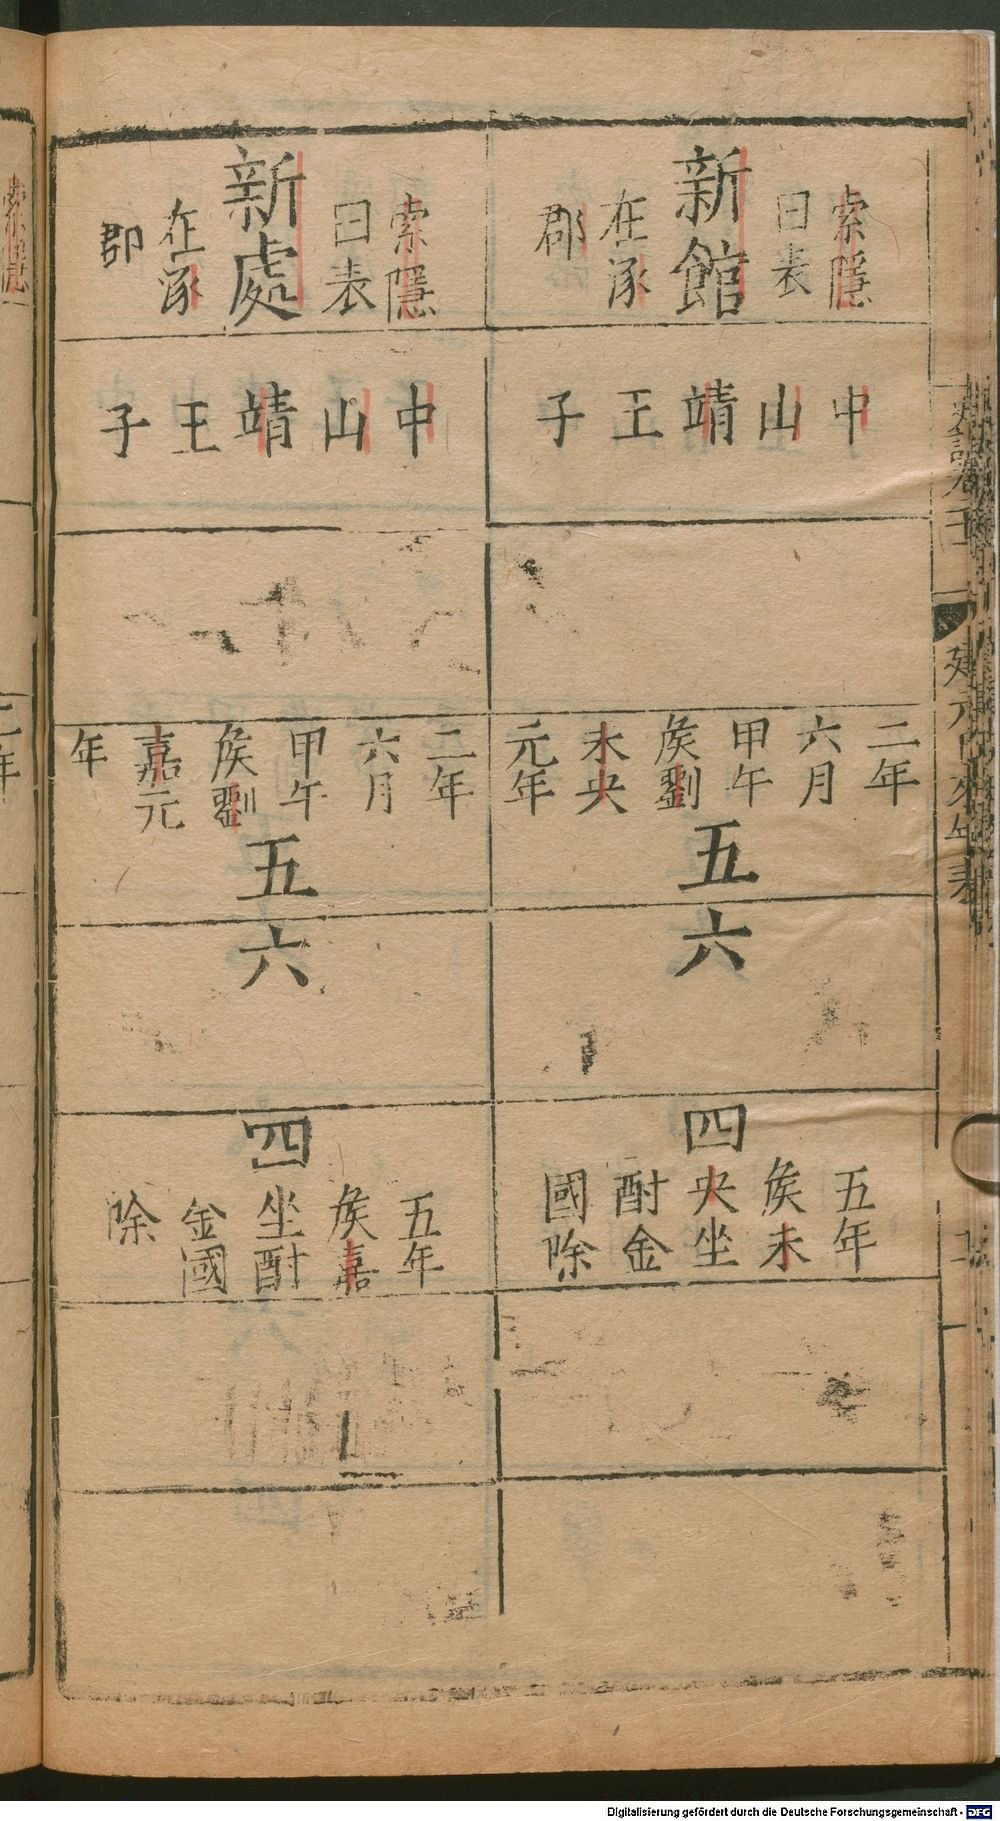 新館
索隱
曰表
在涿
郡
中山靖王子
二年
六月
甲午
侯劉
未央
元年
五
六
四
五年
侯未
央坐
酎金
國除
新處
索隱
曰表
在涿
郡
中山靖王子
二年
六月
甲午
侯劉
嘉元
年
五
六
四
五年
侯嘉
坐酎
金國
除
索隱
Digitalisierung gefördert durch die Deutsche Forschungsgemeinschaft - DFG